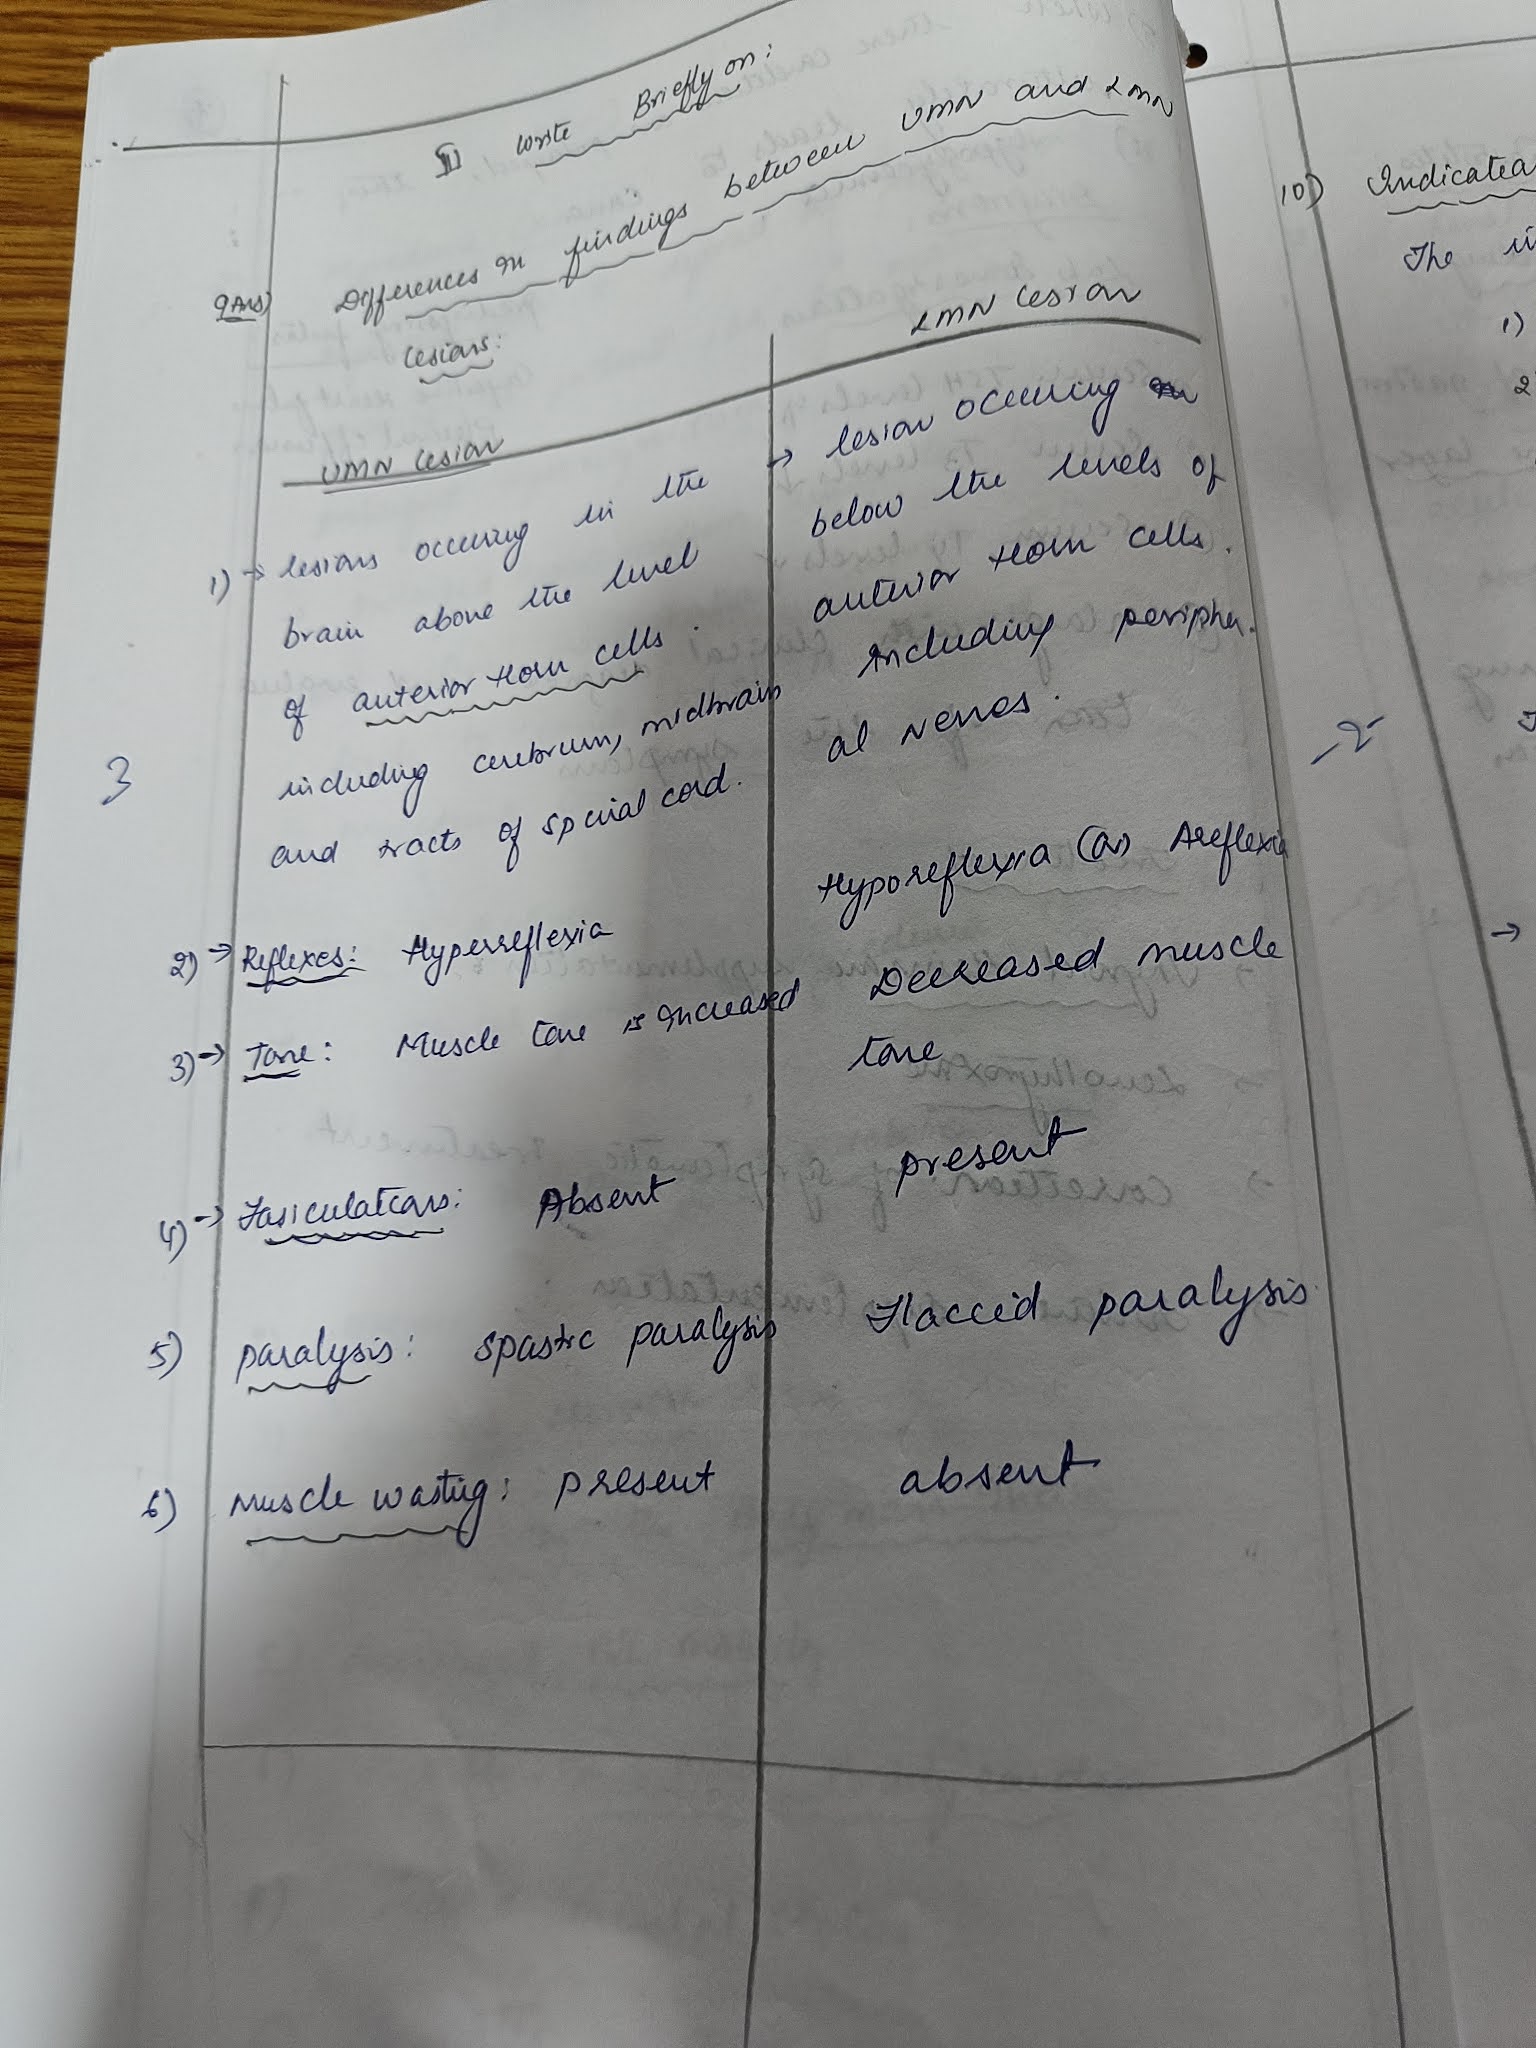 II Write Briefly on:
9Ans) Differences in findings between UMN and LMN
lesions:
UMN lesion
1) → lesions occuring in the
brain above the level
of anterior Horn cells.
including cerebrum, midbrain
and tracts of spinal cord.
2) → Reflexes: Hyperreflexia
3) → Tone: Muscle tone is increased
4) → Fasiculations: Absent
5) paralysis: spastic paralysis
6) Muscle wasting: present
LMN lesion
→ lesion occuring
below the levels of
anterior Horn cells.
Including peripher-
al nerves.
Hyporeflexia (or) Areflexia
Decreased muscle
tone
present
Flaccid paralysis
absent
3
10)
The
1)
2
-2-
→